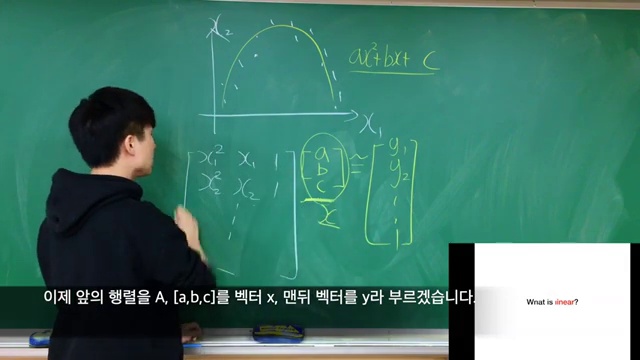 x₂
ax²+bx+ c
x₁
x₁² x₁ 1 a ≈ y₁
x₂² x₂ 1 b y₂
c
x
이제 앞의 행렬을 A, [a,b,c]를 벡터 x, 맨뒤 벡터를 y라 부르겠습니다.
What is linear?